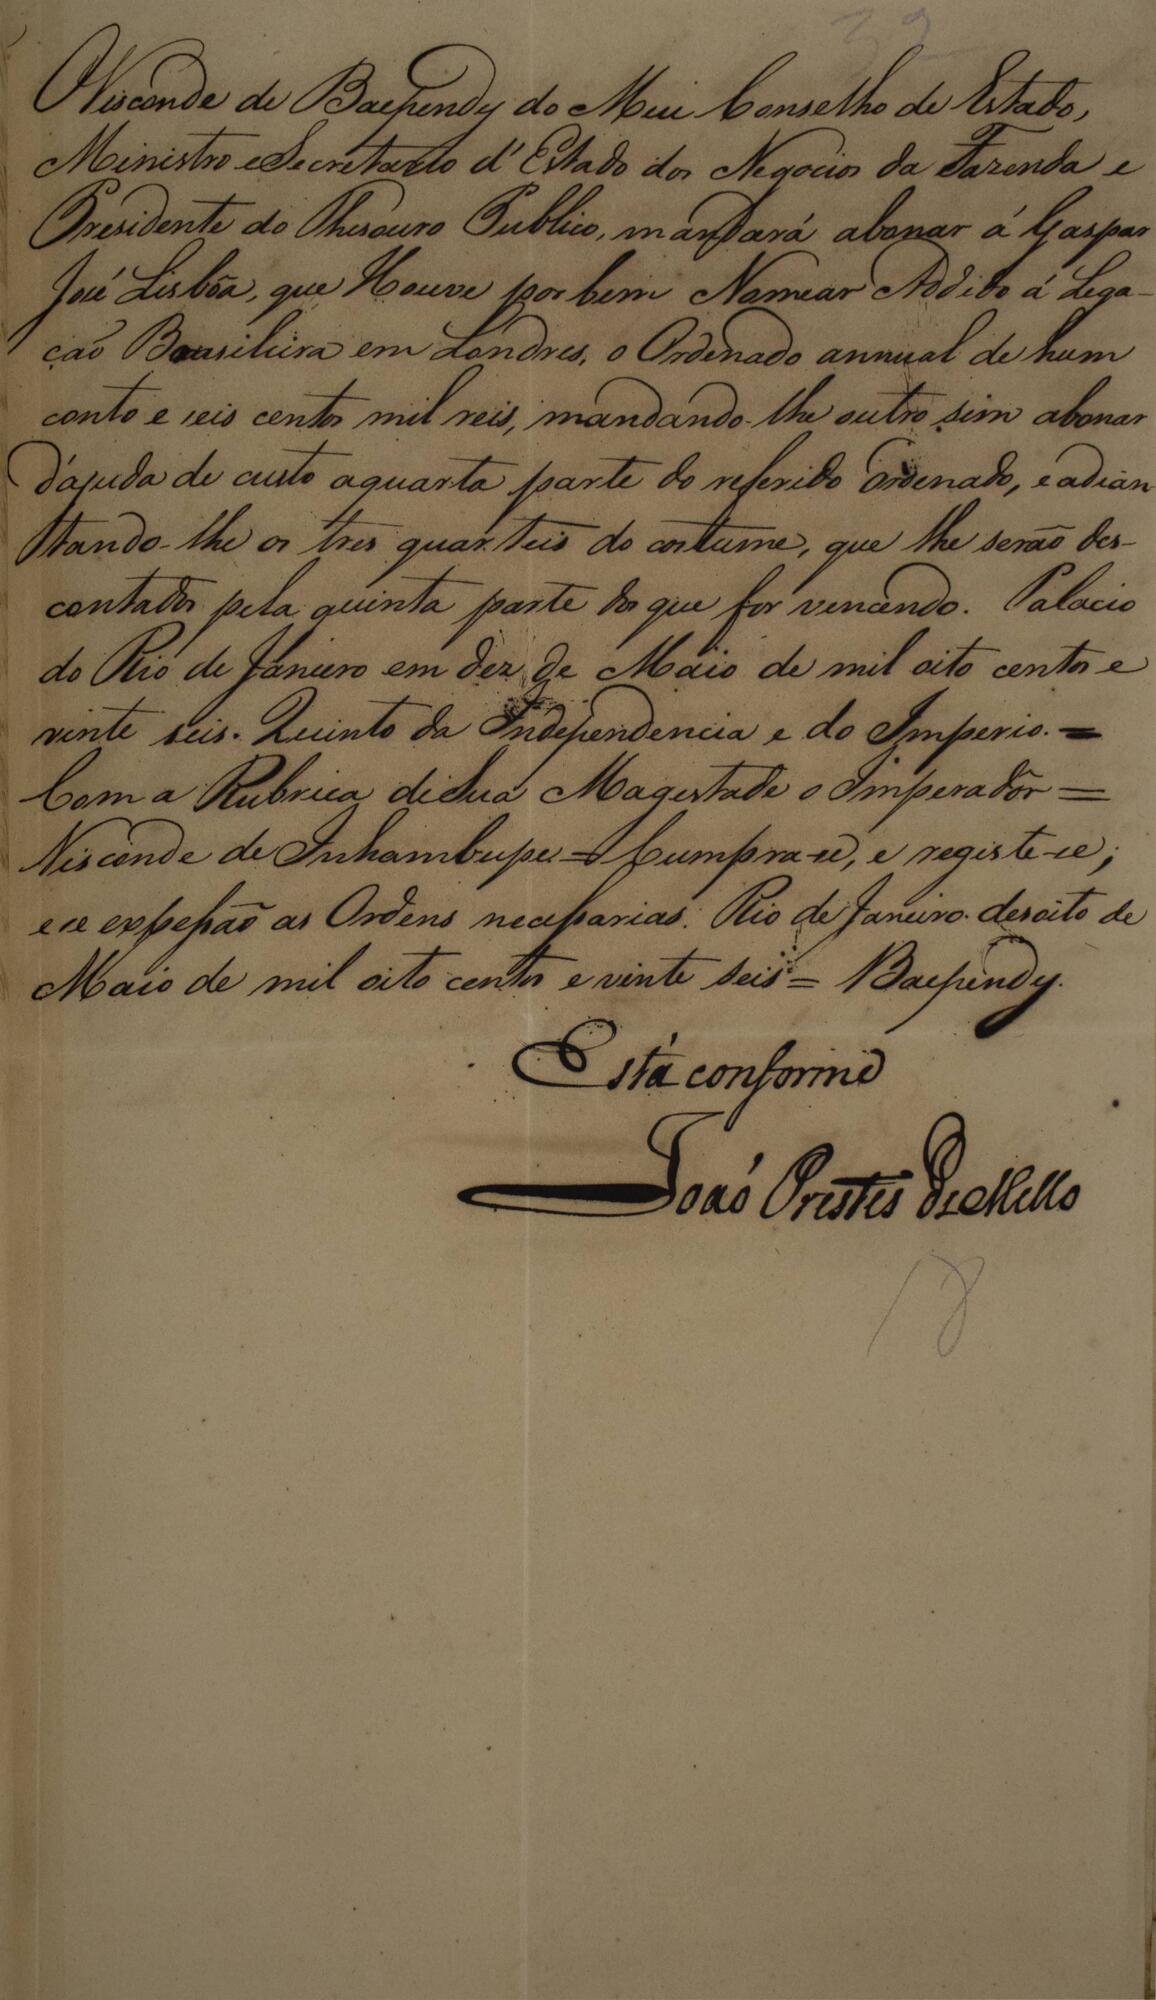 39
O Visconde de Baependy do Meu Conselho de Estado,
Ministro e Secretario d'Estado dos Negocios da Fazenda e
Presidente do Thesouro Publico, mandará abonar á Gaspar
José Lisbôa, que Houve por bem Nomear Addido á Lega-
ção Brasileira em Londres, o Ordenado annual de hum
conto e seis centos mil reis, mandando-lhe outro sim abonar
d'ajuda de custo a quarta parte do referido Ordenado, e adian
tando-lhe os tres quarteis do costume, que lhe serão des-
contados pela quinta parte do que for vencendo. Palacio
do Rio de Janeiro em dez de Maio de mil oito centos e
vinte seis. Quinto da Independencia e do Imperio. =
Com a Rubrica de Sua Magestade o Imperadôr =
Visconde de Inhambupe = Cumpra-se, e registe-se;
e se expeção as Ordens necessarias. Rio de Janeiro desoito de
Maio de mil oito centos e vinte seis = Baependy.
Está conforme
João Prestes de Mello
18